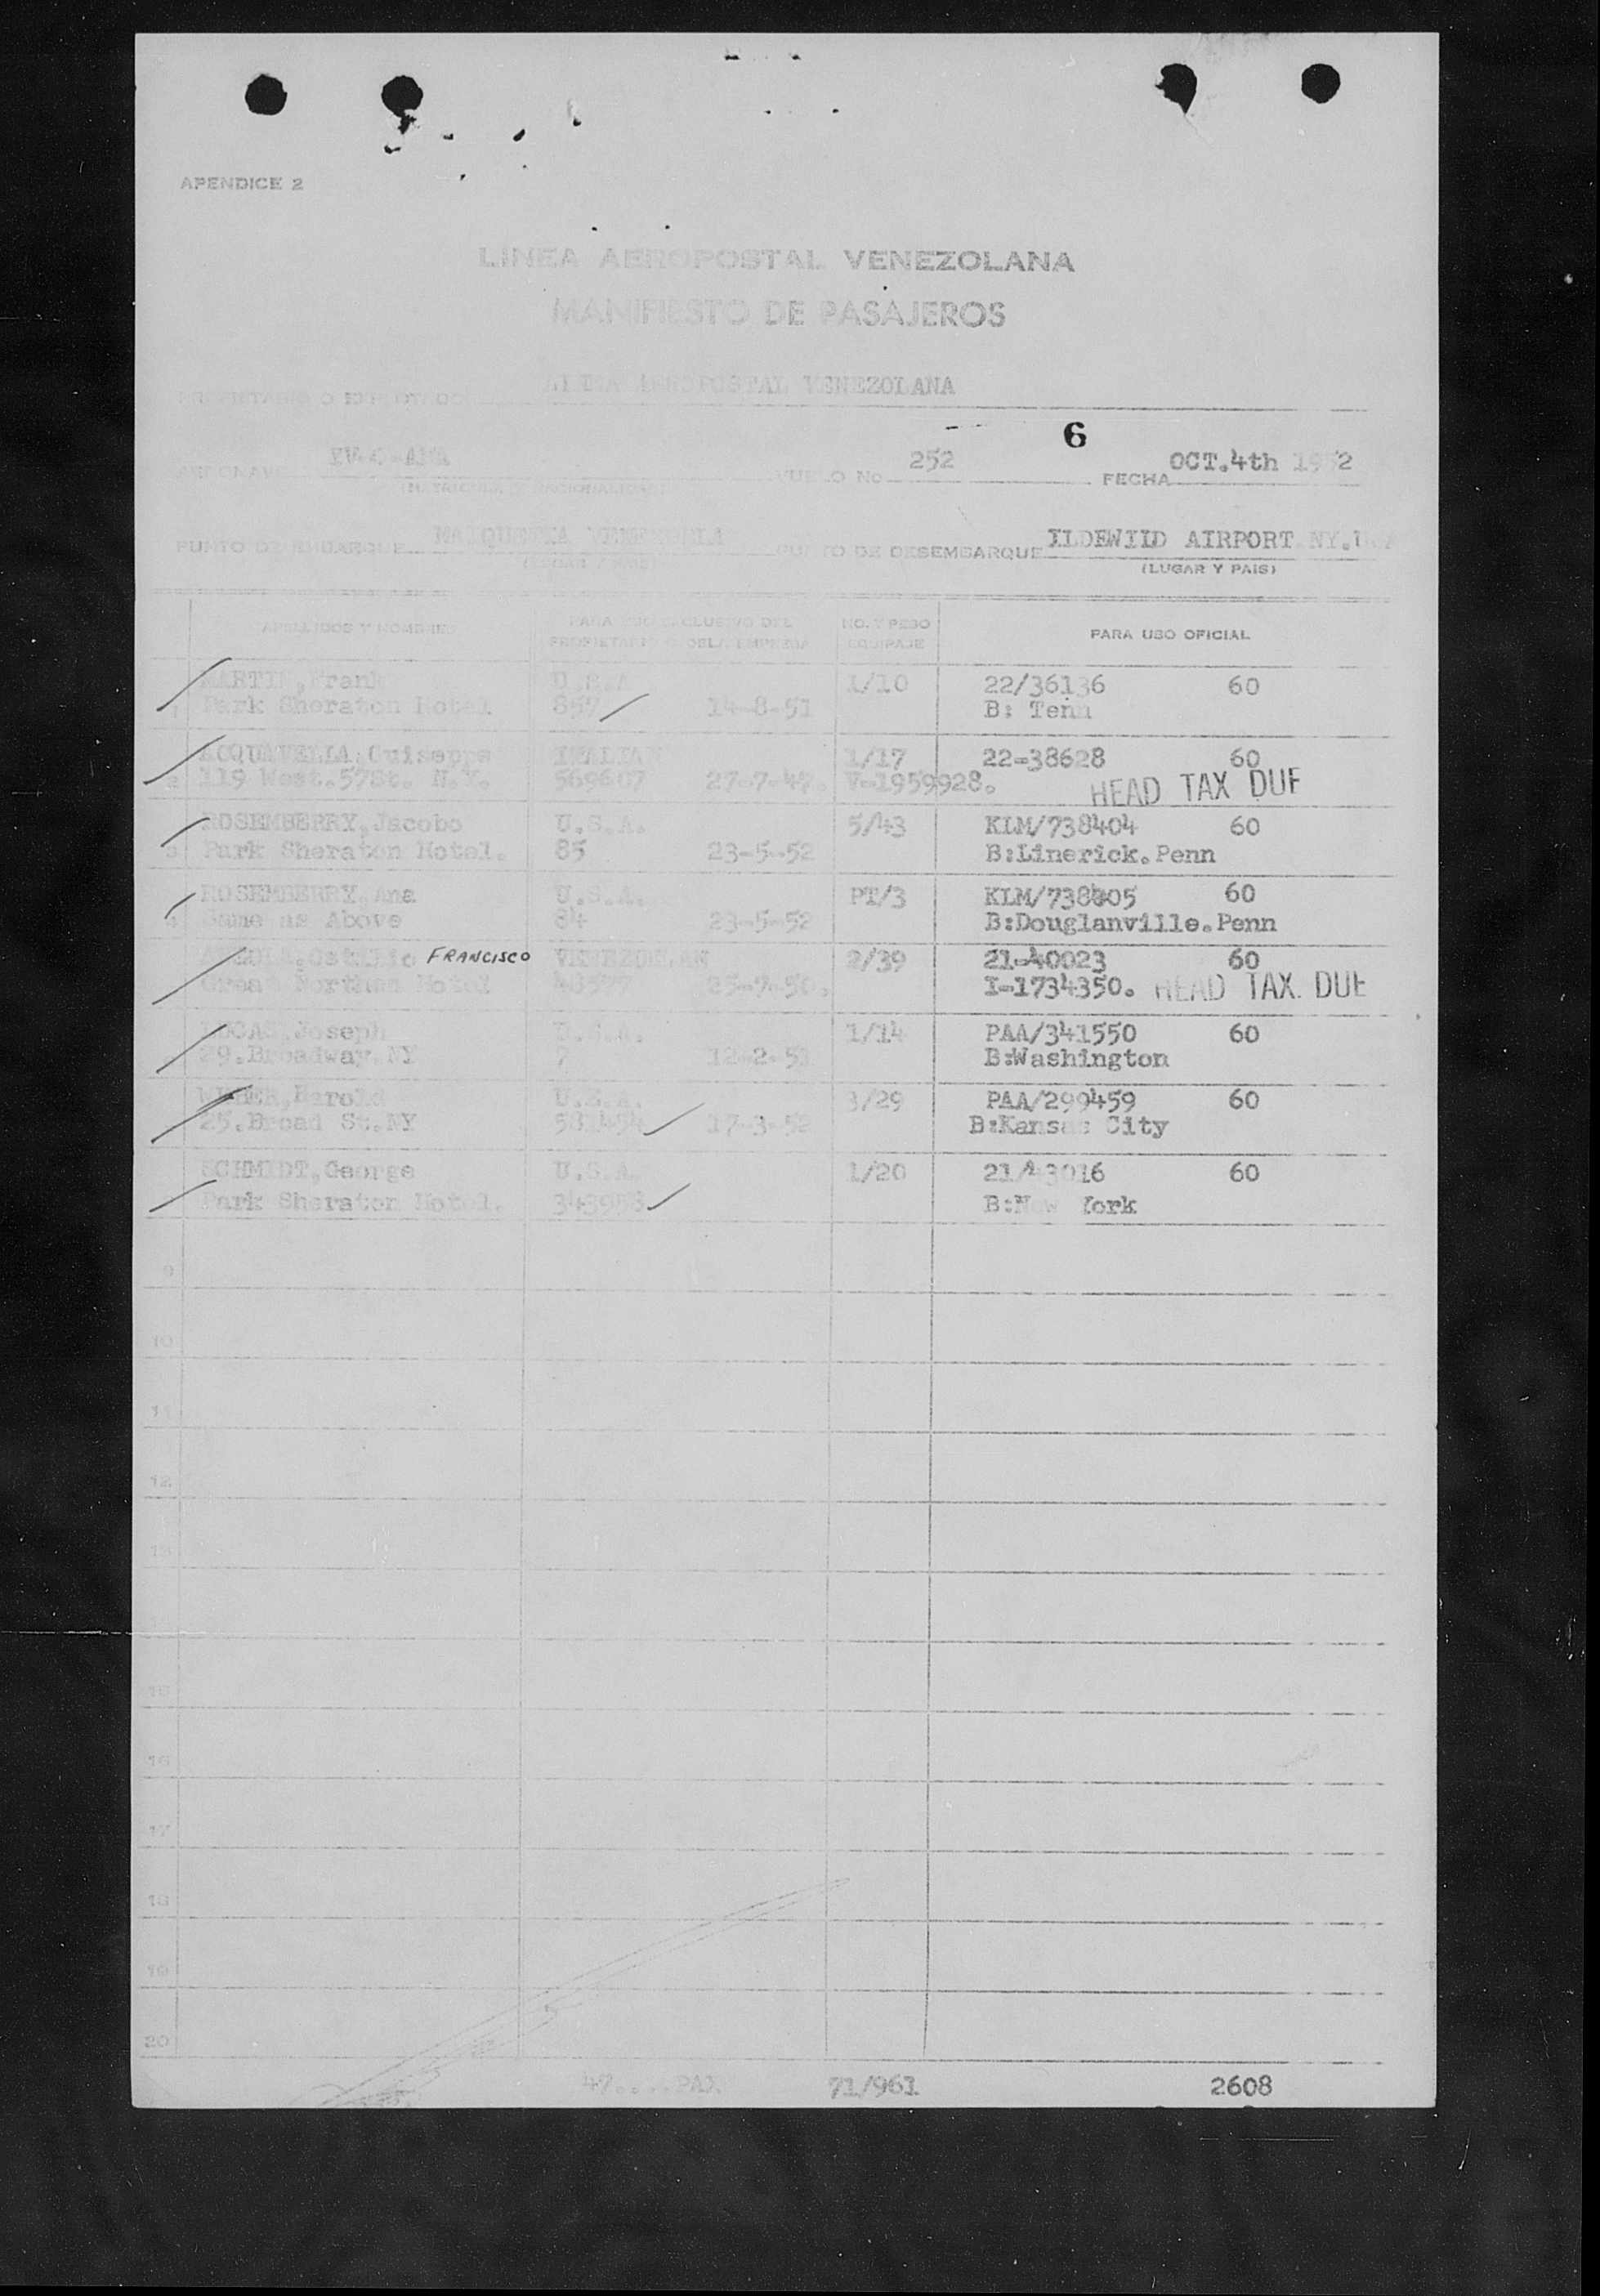 APENDICE 2
LINEA AEROPOSTAL VENEZOLANA
MANIFIESTO DE PASAJEROS
LINEA AEROPOSTAL VENEZOLANA
6
252 OCT.4th 1952
AERONAVE VUELO No FECHA
MAIQUETIA VENEZUELA ILDEWILD AIRPORT NY.
PUNTO DE EMBARQUE PUNTO DE DESEMBARQUE
(LUGAR Y PAIS) (LUGAR Y PAIS)
APELLIDOS Y NOMBRES PARA USO EXCLUSIVO DEL PROPIETARIO O DE LA EMPRESA NO. Y PESO EQUIPAJE PARA USO OFICIAL
MARTIN, Frank U.S.A 1/10 22/36136 60
1 Park Sheraton Hotel 857 14-8-51 B: Tenn
ACQUAVELLA, Guiseppe ITALIAN 1/17 22-38628 60
2 119 West.57St. N.Y. 569607 27-7-47. V-1959928. HEAD TAX DUE
ROSEMBERRY, Jacobo U.S.A. 5/43 KLM/738404 60
3 Park Sheraton Hotel. 85 23-5-52 B:Linerick.Penn
ROSEMBERRY, Ana U.S.A. PT/3 KLM/738405 60
4 Same as Above 84 23-5-52 B:Douglanville.Penn
FRANCISCO VENEZOLAN 2/39 21-40023 60
Great Northen Hotel 25-7-50. I-1734350. HEAD TAX DUE
LUCAS, Joseph U.S.A. 1/14 PAA/341550 60
29.Broadway.NY 7 12-2-51 B:Washington
Harold U.S.A. 3/29 PAA/299459 60
25.Broad St.NY 581454 17-3-52 B:Kansas City
SCHMIDT, George U.S.A. 1/20 21/43016 60
Park Sheraton Hotel. 343958 B:New York
9
10
11
12
13
15
16
17
18
19
20
47....PAX 71/961 2608